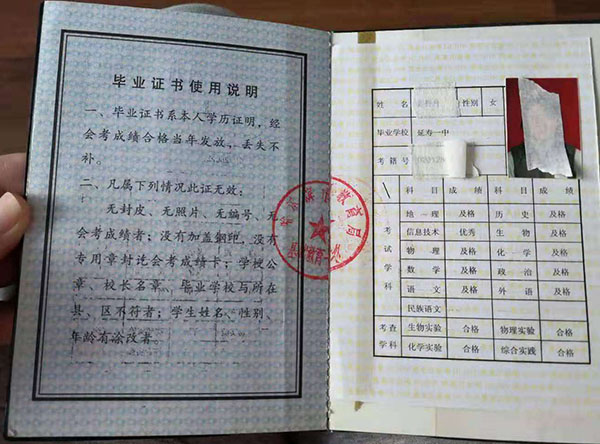 毕业证书使用说明
一、毕业证书系本人学历证明，经
会考成绩合格当年发放，丢失不
补。
二、凡属下列情况此证无效：
无封皮、无照片、无编号、无
会考成绩者；没有加盖钢印、没有
专用章封讫会考成绩卡；学校公
章、校长名章、毕业学校与所在
县、区不符者；学生姓名、性别、
年龄有涂改者。
姓 名 性别 女
毕业学校 延寿一中
考籍号
科 目 成 绩 科 目 成 绩
考试学科
地 理 及格 历 史 及格
信息技术 优秀 生 物 及格
物 理 及格 化 学 及格
数 学 及格 政 治 及格
语 文 及格 外 语 及格
民族语文
考查学科
生物实验 合格 物理实验 合格
化学实验 合格 综合实践 合格
教育局